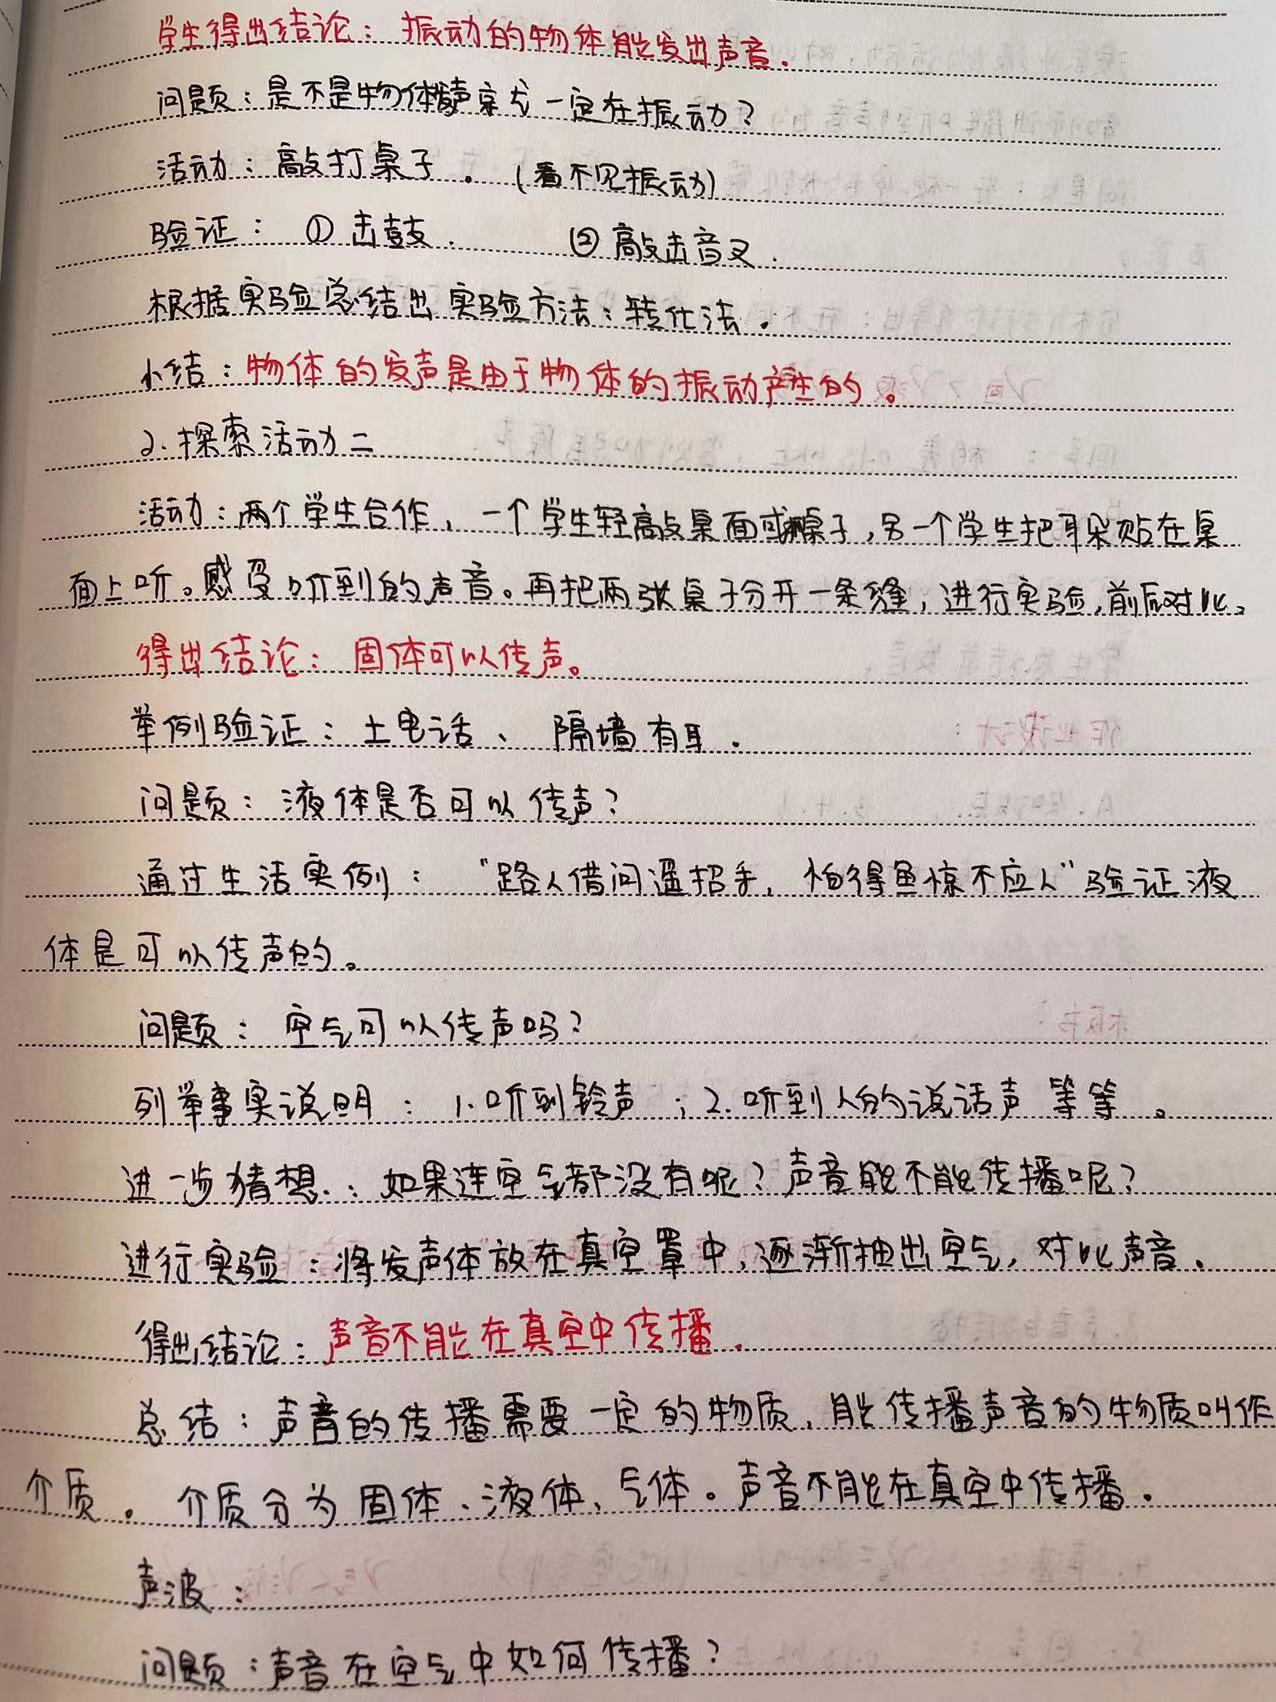 学生得出结论：振动的物体能发出声音.
问题：是不是物体发声就一定在振动？
活动：敲打桌子。（看不见振动）
验证：①击鼓. ②敲击音叉.
根据实验总结出实验方法：转化法。
小结：物体的发声是由于物体的振动产生的。
2.探索活动二
活动：两个学生合作，一个学生轻敲桌面或桌子，另一个学生把耳朵贴在桌
面上听。感受听到的声音。再把两张桌子分开一条缝，进行实验，前后对比。
得出结论：固体可以传声。
举例验证：土电话、隔墙有耳.
问题：液体是否可以传声？
通过生活实例：“路人借问遥招手，怕得鱼惊不应人”验证液
体是可以传声的。
问题：空气可以传声吗？
列举事实说明：1.听到铃声；2.听到人的说话声等等。
进一步猜想：如果连空气都没有呢？声音能不能传播呢？
进行实验：将发声体放在真空罩中，逐渐抽出空气，对比声音.
得出结论：声音不能在真空中传播.
总结：声音的传播需要一定的物质，能传播声音的物质叫作
介质。介质分为固体、液体、气体。声音不能在真空中传播.
声波：
问题：声音在空气中如何传播？